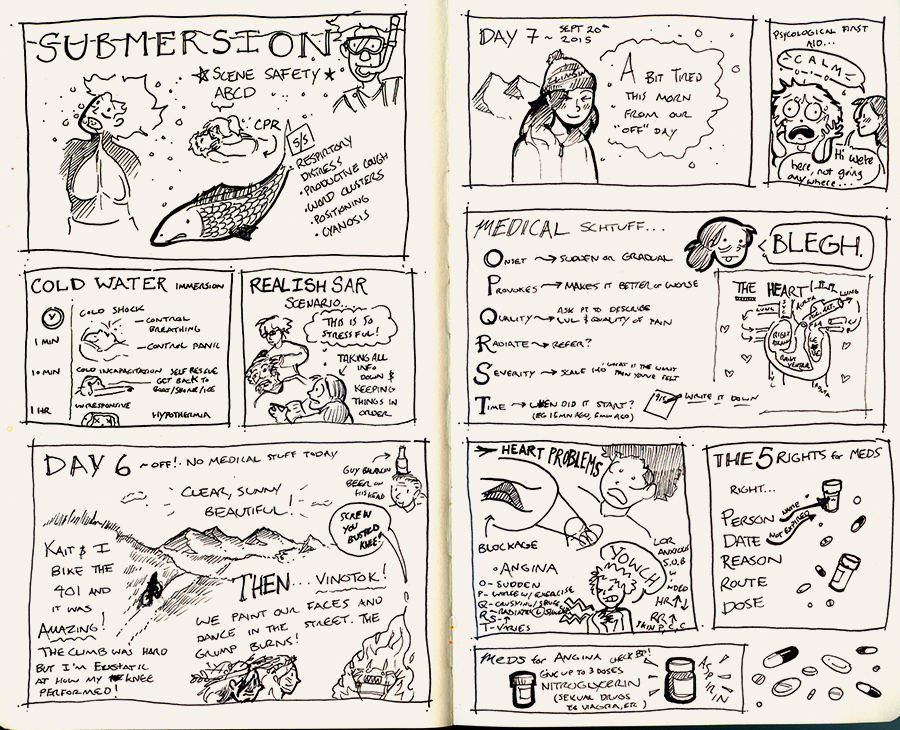 SUBMERSION
★ SCENE SAFETY ★
ABCD
CPR
S/S
• RESPIRTORY
DISTRESS
• PRODUCTIVE COUGH
• WORD CLUSTERS
• POSITIONING
• CYANOSIS
COLD WATER IMMERSION
1 MIN
COLD SHOCK
— CONTROL
BREATHING
— CONTROL PANIC
10 MIN
COLD INCAPACITATION
SELF RESCUE
GET BACK TO
BOAT/SHORE/ICE
1 HR
UNRESPONSIVE
HYPOTHERMIA
REALISH SAR
SCENARIO...
THIS IS SO
STRESSFUL!
TAKING ALL
INFO
DOWN &
KEEPING
THINGS IN
ORDER
DAY 6 ~ OFF! · NO MEDICAL STUFF TODAY
GUY BALANCIN
BEER ON
HIS HEAD
CLEAR, SUNNY
BEAUTIFUL!
SCREW
YOU
BUSTED
KNEE!
KAIT & I
BIKE THE
401 AND
IT WAS
AMAZING!
THE CLIMB WAS HARD
BUT I'M EXSTATIC
AT HOW MY KNEE
PERFORMED!
THEN... VINOTOK!
WE PAINT OUR FACES AND
DANCE IN THE STREET. THE
GRUMP BURNS!
DAY 7 ~ SEPT 20th
2015
A BIT TIRED
THIS MORN
FROM OUR
"OFF" DAY
PSYCOLOGICAL FIRST
AID...
= CALM =
Hi we're
here, not going
anywhere...
MEDICAL SCHTUFF...
BLEGH.
ONSET → SUDDEN OR GRADUAL
PROVOKES → MAKES IT BETTER OR WORSE
QUALITY → ASK PT TO DESCRIBE
LVL & QUALITY OF PAIN
RADIATE → REFER?
SEVERITY → SCALE 1-10 WHAT IF THE WORST
PAIN YOU'VE FELT
TIME → WHEN DID IT START?
(EG 15 MIN AGO, 5 MIN AGO)
WRITE IT DOWN
THE HEART
LUNG
AORTA
RIGHT
→ HEART PROBLEMS
BLOCKAGE
• ANGINA
O- SUDDEN
P- WORSE W/ EXERCISE
T- VARIES
YOWCH!
LOR
ANXIOUS
S.O.B
HR↑
RR↑
SKIN P.C.C
THE 5 RIGHTS for MEDS
RIGHT...
PERSON NAME
DATE NOT EXPIRED
REASON
ROUTE
DOSE
MEDS for ANGINA CHECK BP!
GIVE UP TO 3 DOSES
NITROGLYCERIN
(SEXUAL DRUGS
VIAGRA, ETC)
ASPIRIN